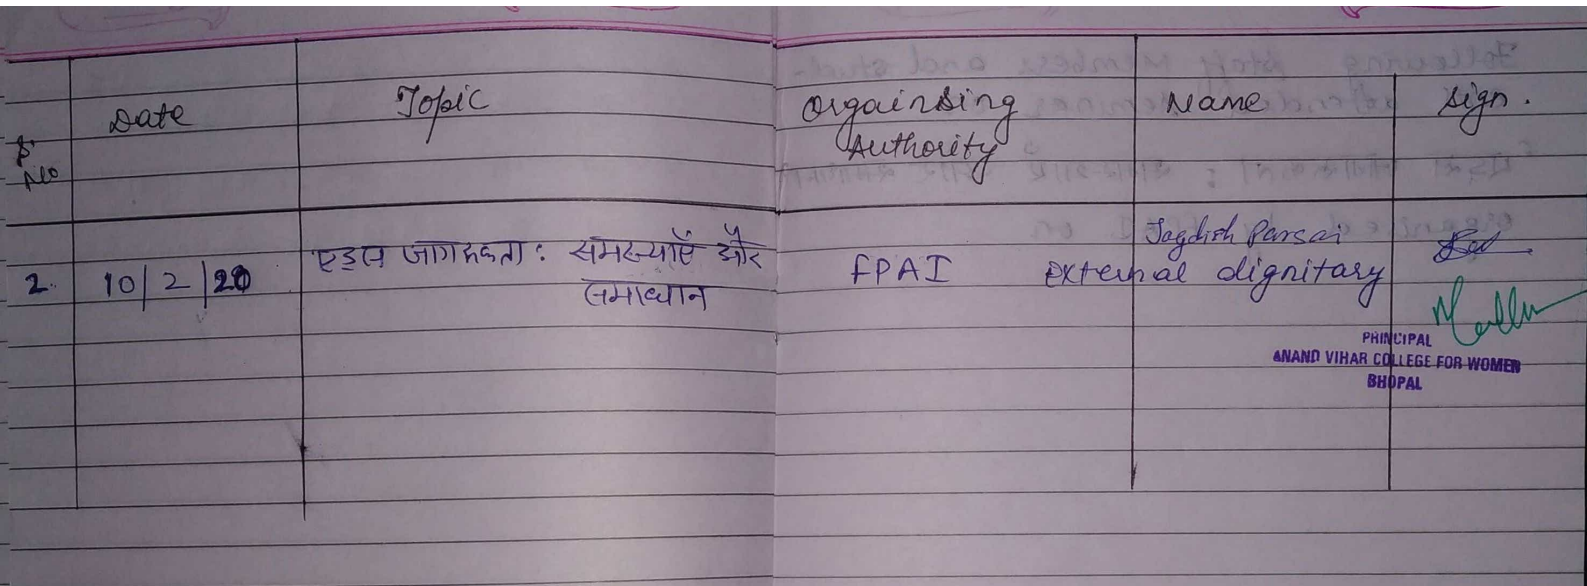 S.
No
Date
Topic
Orgainsing
Authority
Name
Sign.
2.
10/2/20
एड्स जागरूकता: समस्याएँ और
समाधान
FPAI
Jagdish Parsai
external dignitary
PRINCIPAL
ANAND VIHAR COLLEGE FOR WOMEN
BHOPAL